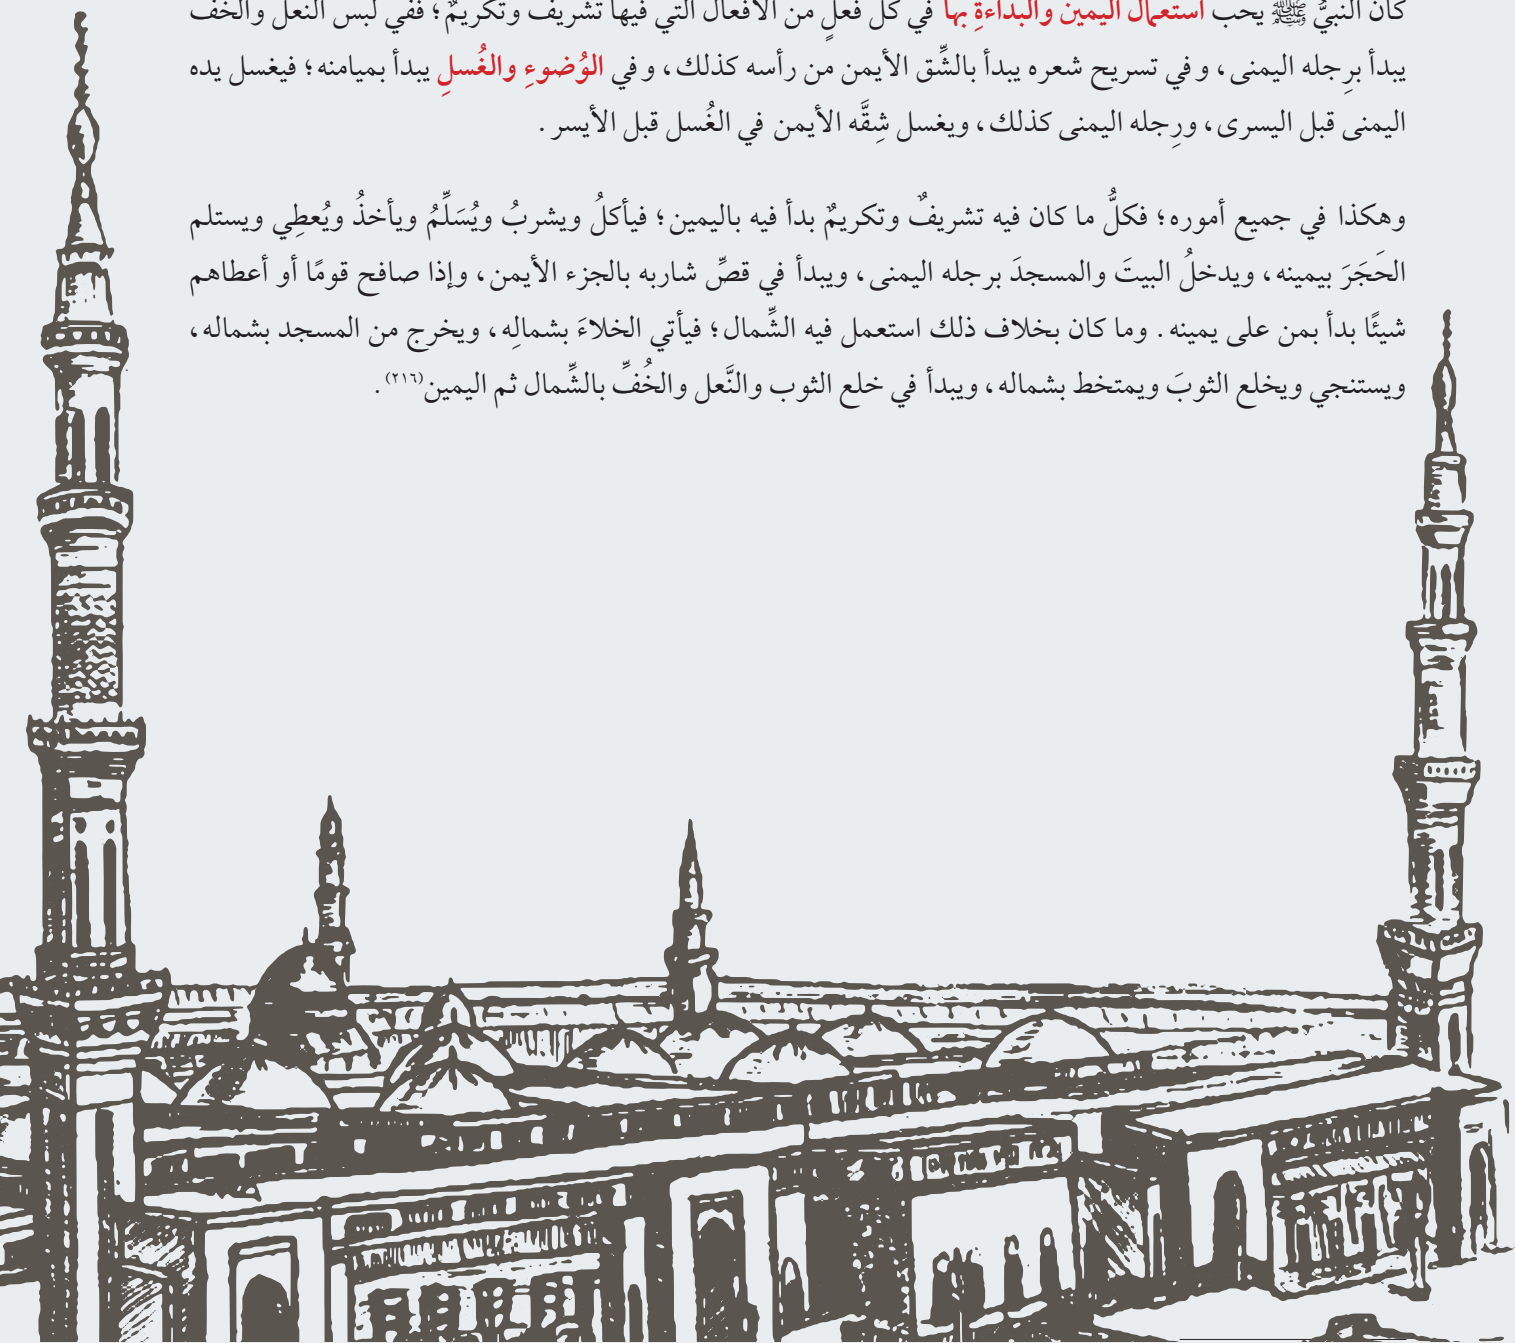 كان النبيُّ ﷺ يحب استعمال اليمين والبداءةِ بها في كل فعلٍ من الأفعال التي فيها تشريف وتكريمٌ؛ ففي لبس النعل والخف
يبدأ برِجله اليمنى، وفي تسريح شعره يبدأ بالشِّق الأيمن من رأسه كذلك، وفي الوُضوءِ والغُسلِ يبدأ بميامنه؛ فيغسل يده
اليمنى قبل اليسرى، ورِجله اليمنى كذلك، ويغسل شِقَّه الأيمن في الغُسل قبل الأيسر.
وهكذا في جميع أموره؛ فكلُّ ما كان فيه تشريفٌ وتكريمٌ بدأ فيه باليمين؛ فيأكلُ ويشربُ ويُسَلِّمُ ويأخذُ ويُعطِي ويستلم
الحَجَرَ بيمينه، ويدخلُ البيتَ والمسجدَ برجله اليمنى، ويبدأ في قصِّ شاربه بالجزء الأيمن، وإذا صافح قومًا أو أعطاهم
شيئًا بدأ بمن على يمينه. وما كان بخلاف ذلك استعمل فيه الشِّمال؛ فيأتي الخلاءَ بشمالِه، ويخرج من المسجد بشماله،
ويستنجي ويخلع الثوبَ ويمتخط بشماله، ويبدأ في خلع الثوب والنَّعل والخُفِّ بالشِّمال ثم اليمين(٢١٦).